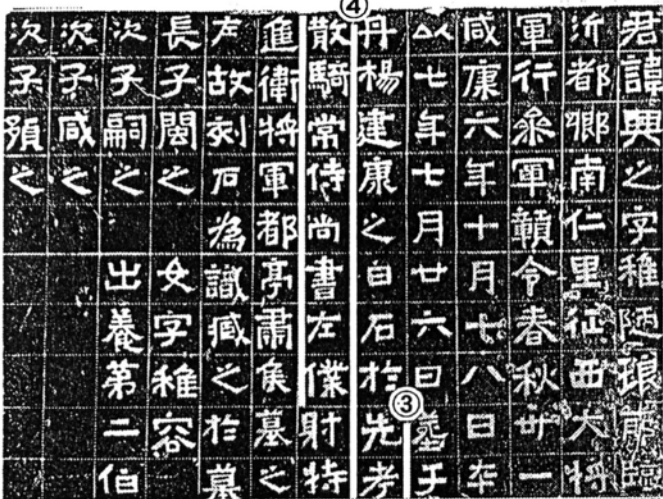 ④
③
君諱興之字稚陋琅耶臨
沂都鄉南仁里征西大將
軍行叅軍贛令春秋卅一
咸康六年十月十八日卒
以七年七月廿六日葬于
丹楊建康之白石於先考
散騎常侍尚書左僕射特
進衛將軍都亭肅侯墓之
左故刻石為識臧之於墓
長子閩之 女字稚容
次子嗣之 出養第二伯
次子咸之
次子預之